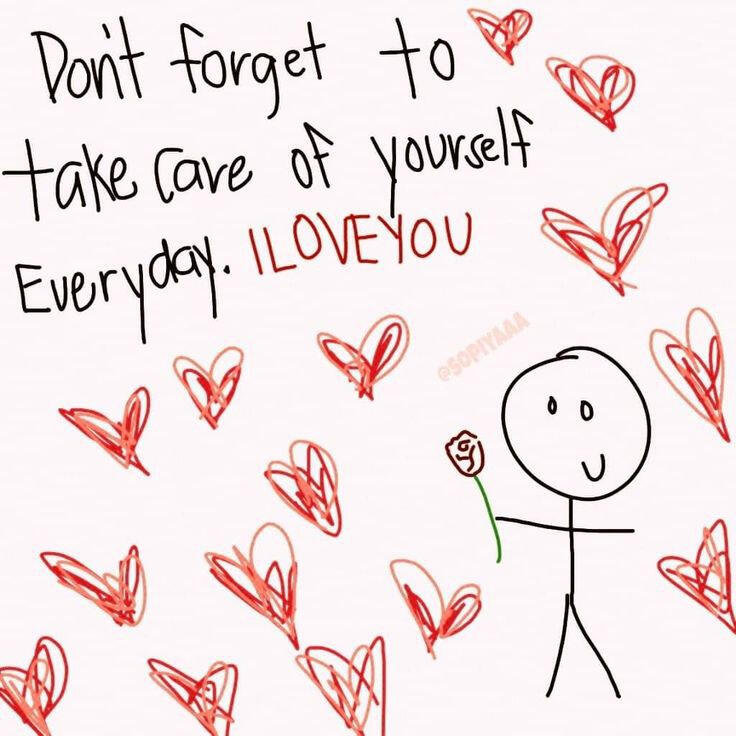 Don't forget to
take care of yourself
Everyday. I LOVE YOU
@SOPIYAAA